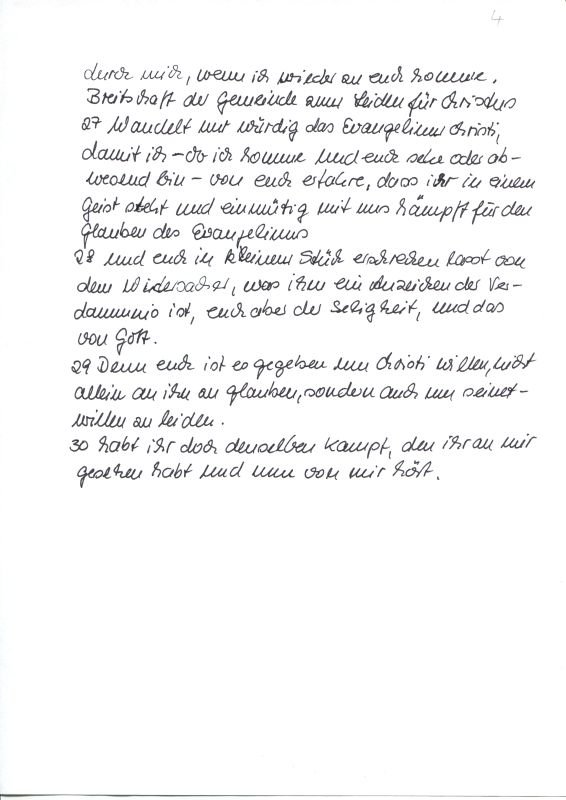 4
durch mich, wenn ich wieder an euch komme.
Breitschaft der Gemeinde zum Leiden für Christus
27 Wandelt nur würdig das Evangelium Christi,
damit ich - ob ich komme und euch sehe oder ab-
wesend bin - von euch erfahre, dass ihr in einem
Geist steht und einmütig mit uns kämpft für den
Glauben des Evangeliums
28 und euch in keinem Stück erschrecken lasst von
dem Widersacher, was ihm ein Anzeichen der Ver-
dammnis ist, euch aber der Seligkeit, und das
von Gott.
29 Denn euch ist es gegeben um Christi willen, nicht
allein an ihn zu glauben, sondern auch um seinet-
willen zu leiden.
30 habt ihr doch denselben Kampf, den ihr an mir
gesehen habt und nun von mir hört.